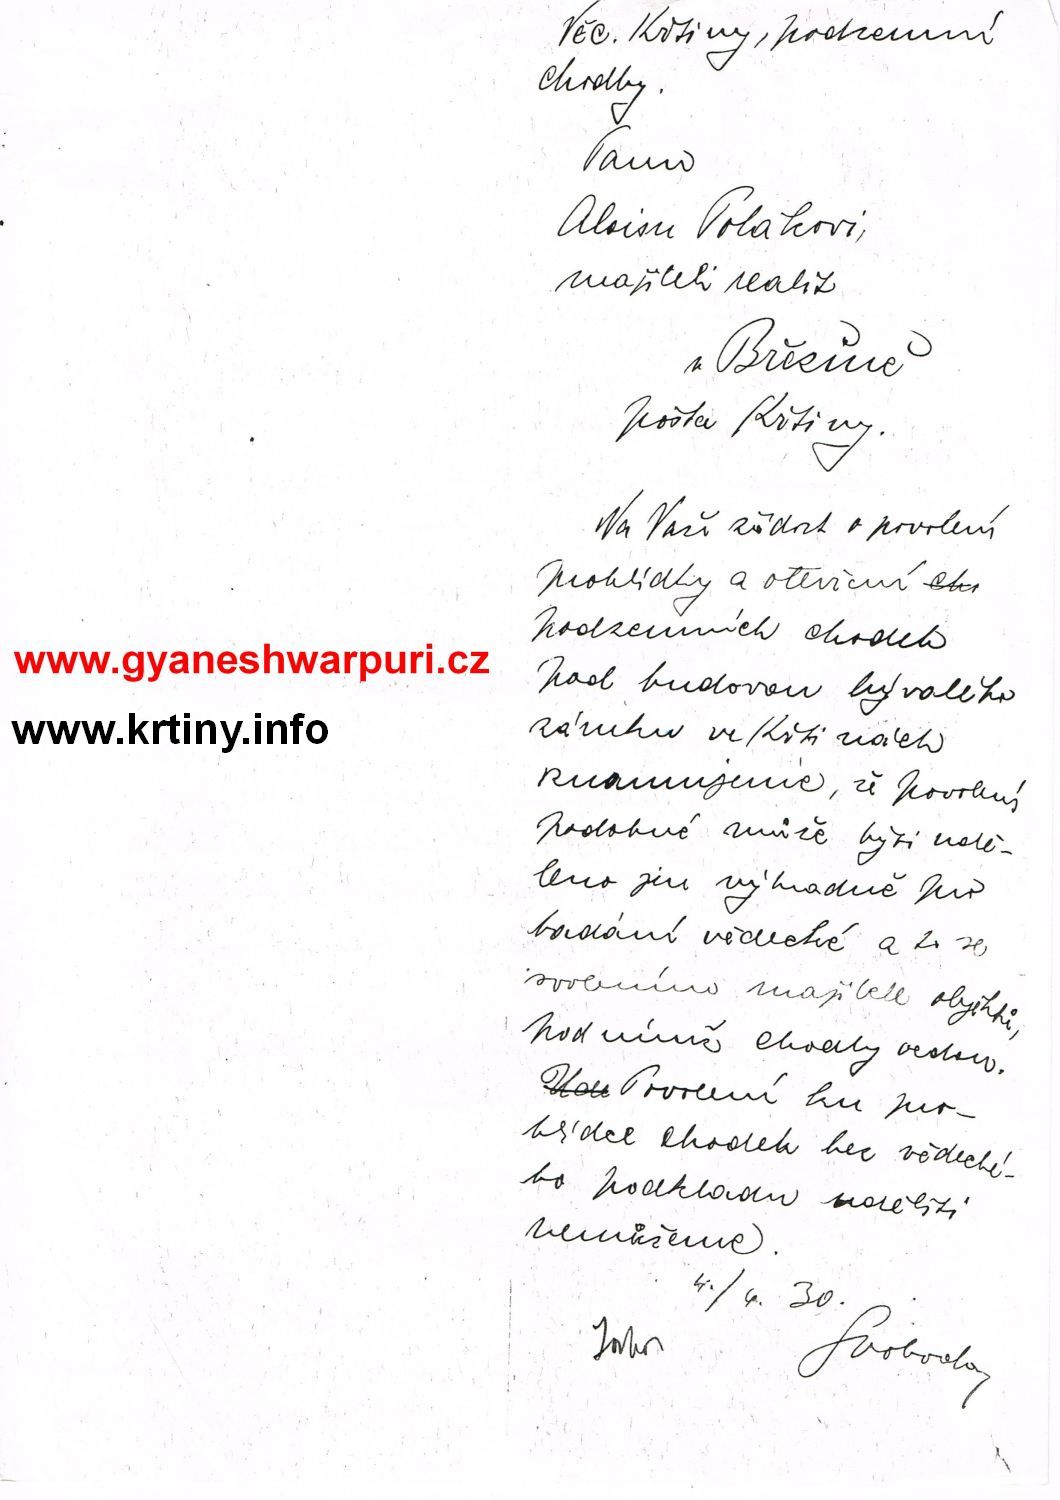 Věc. Křtiny, podzemní
chodby.
Panu
Aloisu Polákovi,
majiteli realit
v Březině
pošta Křtiny.
Na Vaši žádost o povolení
prohlídky a otevření
podzemních chodeb
pod budovou bývalého
zámku ve Křtinách
znamenujeme, že povolení
podobné může býti udě-
leno jen výhradně pro
badání vědecké a to se
svolením majitele objektů,
pod nímiž chodby vedou.
Povolení ku pro-
hlídce chodeb bez vědecké-
ho podkladu uděliti
nemůžeme.
4./4. 30.
Svoboda
www.gyaneshwarpuri.cz
www.krtiny.info